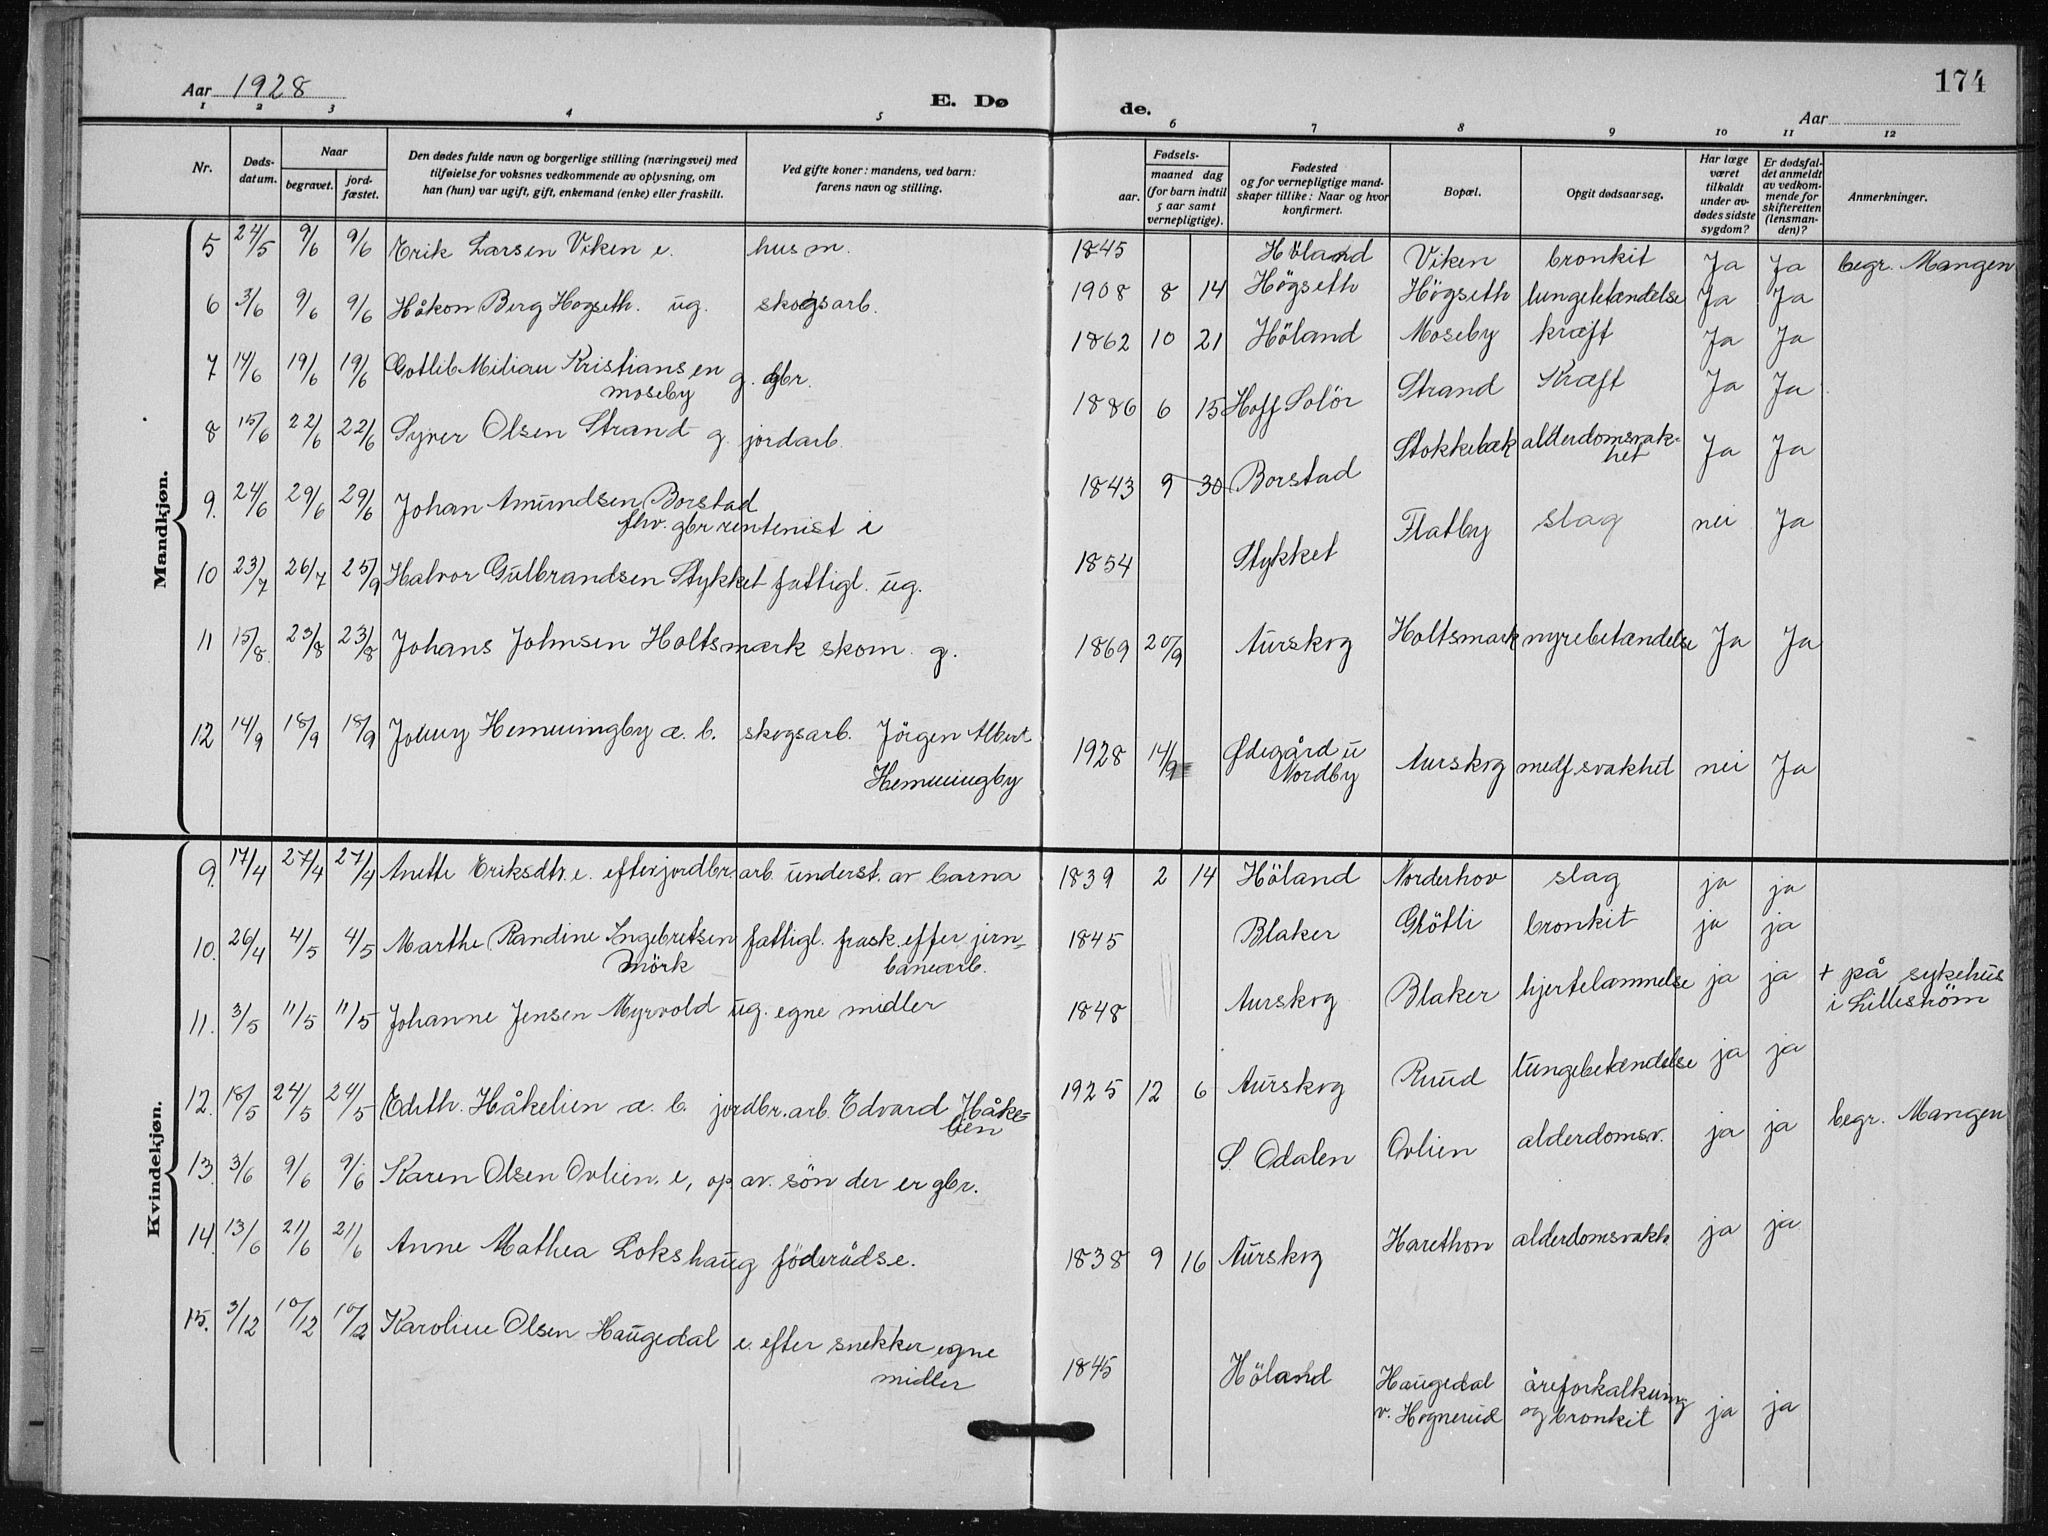 174
Aar 1928
E. Dø de.
Aar
1 2 3 4 5 6 7 8 9 10 11 12
Nr. Døds-datum. Naar begravet. jord-fæstet. Den dødes fulde navn og borgerlige stilling (næringsvei) med tilføielse for voksnes vedkommende av oplysning, om han (hun) var ugift, gift, enkemand (enke) eller fraskilt. Ved gifte koner: mandens, ved barn: farens navn og stilling. Fødsels- aar. maaned dag (for barn indtil 5 aar samt vernepligtige). Fødested og for vernepligtige mand-skaper tillike: Naar og hvor konfirmert. Bopæl. Opgit dødsaarsag. Har læge været tilkaldt under av-dødes sidste sygdom? Er dødsfal-det anmeldt av vedkom-mende for skifteretten (lensman-den)? Anmerkninger.
Mandkjøn.
5 24/5 9/6 9/6 Erik Larsen Viken e. husm. 1845 Höland Viken bronkit Ja Ja begr. Mangen
6 3/6 9/6 9/6 Håkon Berg Hogseth. ug. skogsarb. 1908 8 14 Högseth Högseth lungebetændelse Ja Ja
7 14/6 19/6 19/6 Gotlib Milian Kristiansen g. gbr. 1862 10 21 Höland Moseby kræft Ja Ja
moseby
8 15/6 22/6 22/6 Syver Olsen Strand g. jordarb. 1886 6 15 Hoff Solör Strand Kræft Ja Ja
9. 24/6 29/6 29/6 Johan Amundsen Borstad 1843 9 30 Borstad Stokkebæk alderdomsvak-
het Ja Ja
fhv. gbr rentenist i
10 23/7 26/7 25/9 Halvor Gulbrandsen Stykket fattigl. ug. 1854 Stykket Flatby slag nei Ja
11 15/8. 23/8 23/8 Johans Johnsen Holtsmark skom. g. 1869 20/9 Aurskog Holtsmark nyrebetændelse Ja Ja
12 14/9 18/9 18/9 Hemmingby æ. b. skogsarb. Jörgen Albert 1928 14/9 Ødegård u Aurskog medf. svakhet nei Ja
Hemmingby Nordby
Kvindekjøn.
9. 17/4 27/4 27/4 Anette Eriksdtr. e. efter jordbr. arb. underst. av barna 1839 2 14 Höland Norderhov slag ja ja
10. 26/4 4/5 4/5 Marthe Randine Ingebretsen fattigl. frask. efter jern- 1845 Blaker Glötli bronkit ja ja
Mörk banearb.
11. 3/5 11/5 11/5 Johanne Jensen Myrvold ug. egne midler 1848 Aurskog Blaker hjertelammelse ja ja + på sykehus
i Lilleström
12. 18/5 24/5 24/5 Edith. Håkelien æ. b. jordbr. arb. Edvard Håke- 1925 12 6 Aurskog Ruud lungebetændelse ja ja
lien
13. 3/6 9/6 9/6 Karen Olsen Ovlien. e, op. av. sön der er gbr. S. Odalen Ovlien alderdomsv. ja ja begr. Mangen
14. 13/6 21/6 21/6 Anne Mathea Lokshaug föderådse. 1838 9 16 Aurskog Harethon alderdomsvakh. ja ja
15. 3/12 10/12 10/12 Karoline Olsen Haugedal e. efter snekker egne 1845 Höland Haugedal åreforkalkning ja ja
midler v. Hognerud og bronkit